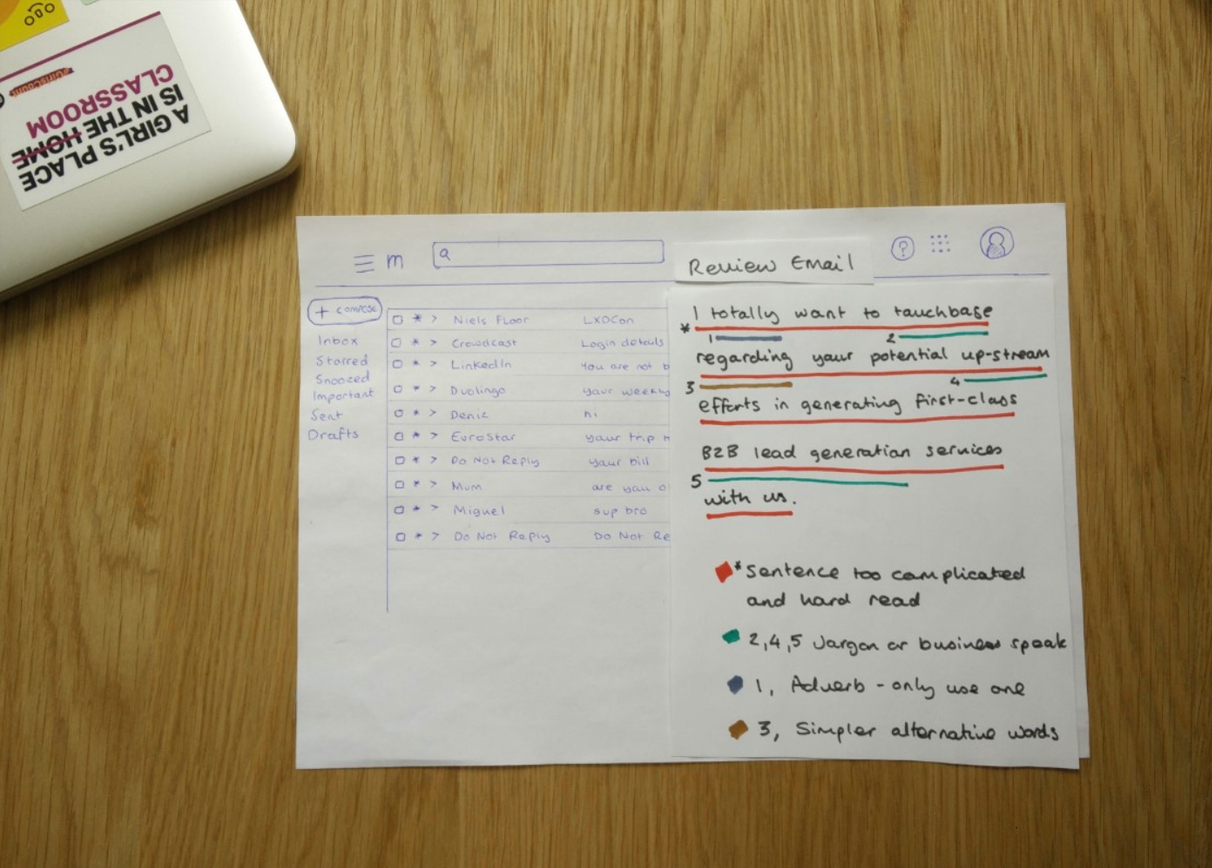 A GIRL'S PLACE
IS IN THE HOME
CLASSROOM
m
Review Email
?
+ compose
Inbox
Starred
Snoozed
Important
Sent
Drafts
Niels Floor LXDCon
Crowdcast Login details
LinkedIn You are not b
Duolingo your weekly
Deniz hi
EuroStar your trip
Do Not Reply your bill
Mum are you o
Miguel sup bro
Do Not Reply Do Not Re
I totally want to touchbase
* 1 2
regarding your potential up-stream
3 4
efforts in generating first-class
B2B lead generation services
5
with us.
* Sentence too complicated
and hard read
2,4,5 Jargon or business speak
1, Adverb - only use one
3, Simpler alternative words